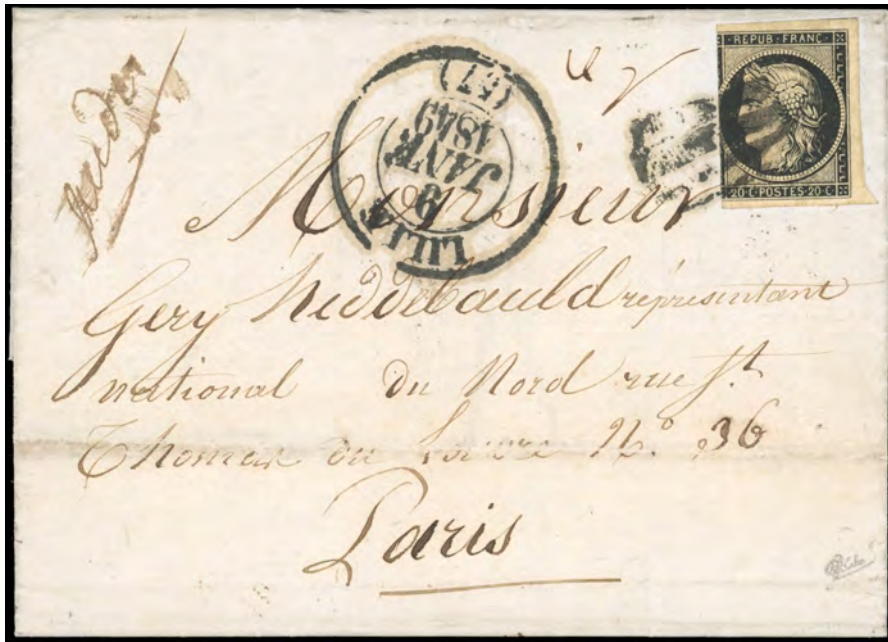 REPUB·FRANC·
20·C·POSTES·20·C
LILLE
9
JANV
1849
(57)
Monsieur
Gery Heddebauld représentant
national du Nord rue St
Thomas du Louvre N.º 36
Paris